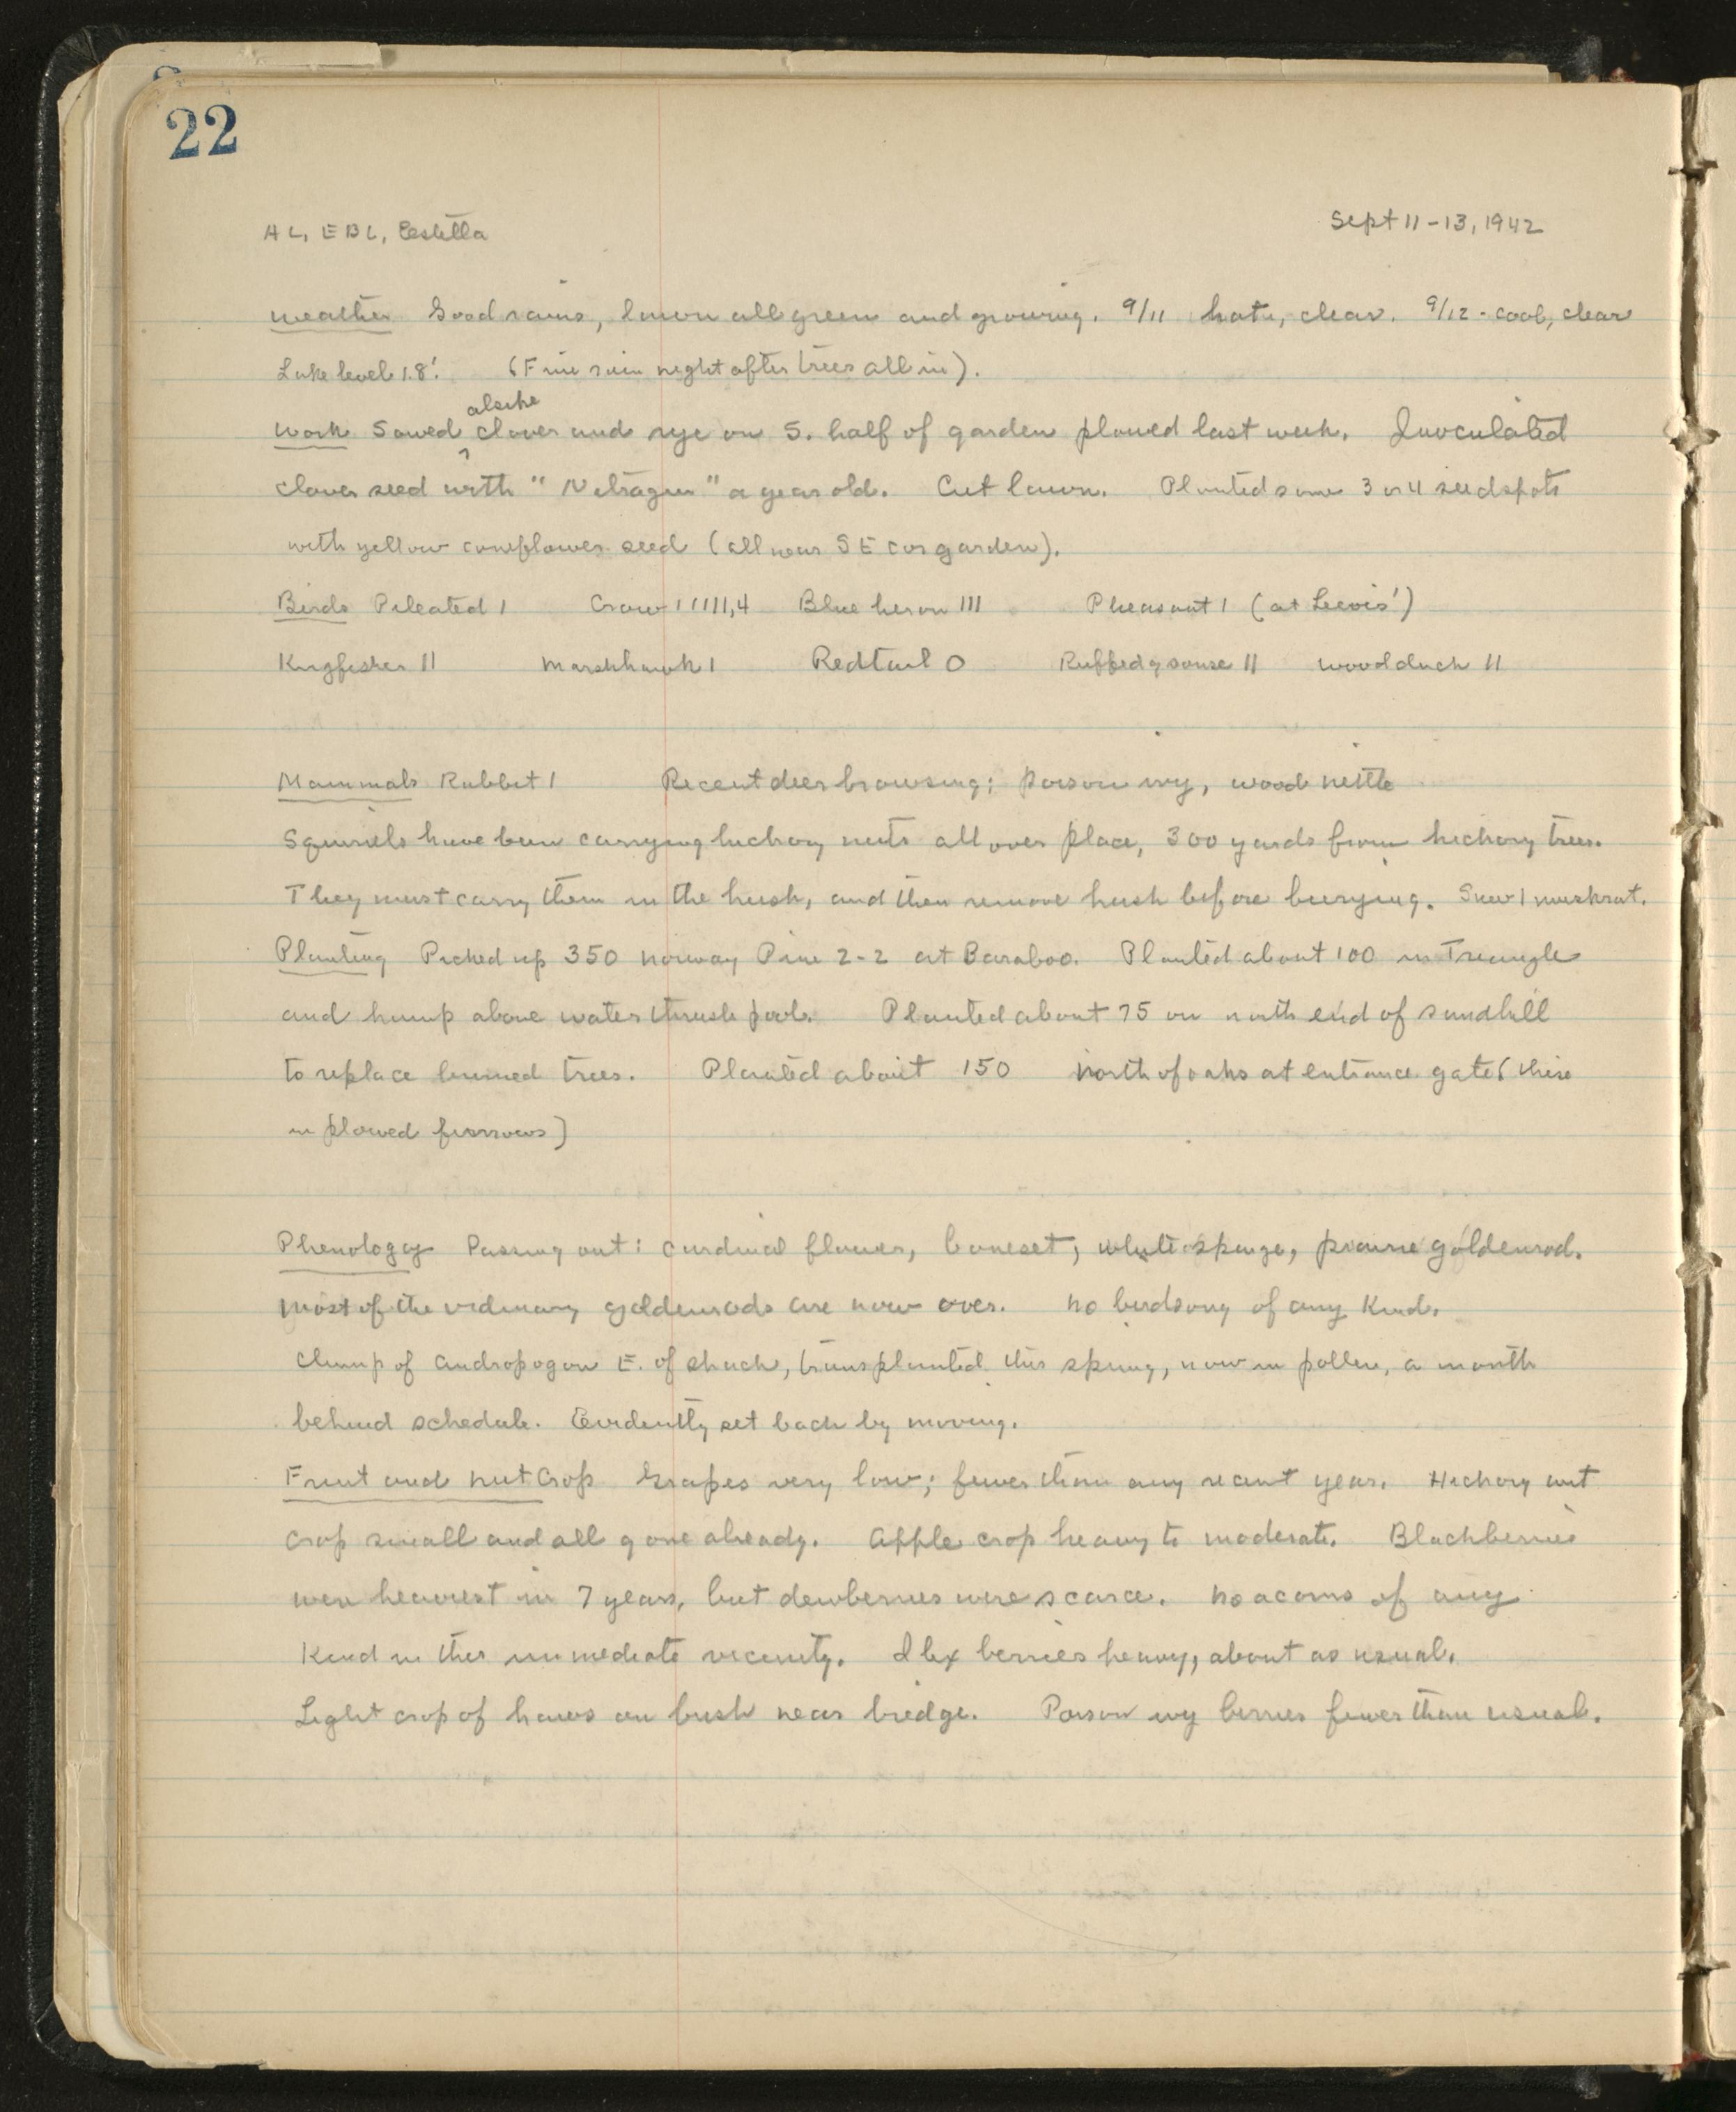 22
AL, EBL, Estella
Sept 11-13, 1942
Weather Good rains, lawn all green and growing. 9/11 hot, clear. 9/12 - cool, clear
Lake level 1.8'. (Fine rain night after trees all in).
alsike
Work Sowed ^ clover and rye on S. half of garden plowed last week. Inoculated
clover seed with "Nitragin" a year old. Cut lawn. Planted some 3 or 4 seedspots
with yellow coneflower seed (all near SE cor garden).
Birds Pileated 1 Crow 111111,4 Blue heron 111 Pheasant 1 (at Lewis')
Kingfisher 11 Marshhawk 1 Redtail 0 Ruffed grouse 11 wood duck 11
Mammals Rabbit 1 Recent deer browsing: poison ivy, wood nettle
Squirrels have been carrying hickory nuts all over place, 300 yards from hickory trees.
They must carry them in the husk, and then remove husk before burying. Saw 1 muskrat.
Planting Picked up 350 norway Pine 2-2 at Baraboo. Planted about 100 in Triangle
and hump above water thrush pool. Planted about 75 on north end of sandhill
to replace burned trees. Planted about 150 north of oaks at entrance gate (these
in plowed furrows)
Phenology Passing out: cardinal flower, boneset, white spurge, prairie goldenrod.
Most of the ordinary goldenrods are now over. No birdsong of any kind.
Clump of andropogon E. of shack, transplanted this spring, now in pollen, a month
behind schedule. Evidently set back by moving.
Fruit and nut crop Grapes very low; fewer than any recent year. Hickory nut
crop small and all gone already. Apple crop heavy to moderate. Blackberries
were heaviest in 7 years, but dewberries were scarce. No acorns of any
kind in this immediate vicinity. Ilex berries heavy, about as usual.
Light crop of haws on bush near bridge. Poison ivy berries fewer than usual.